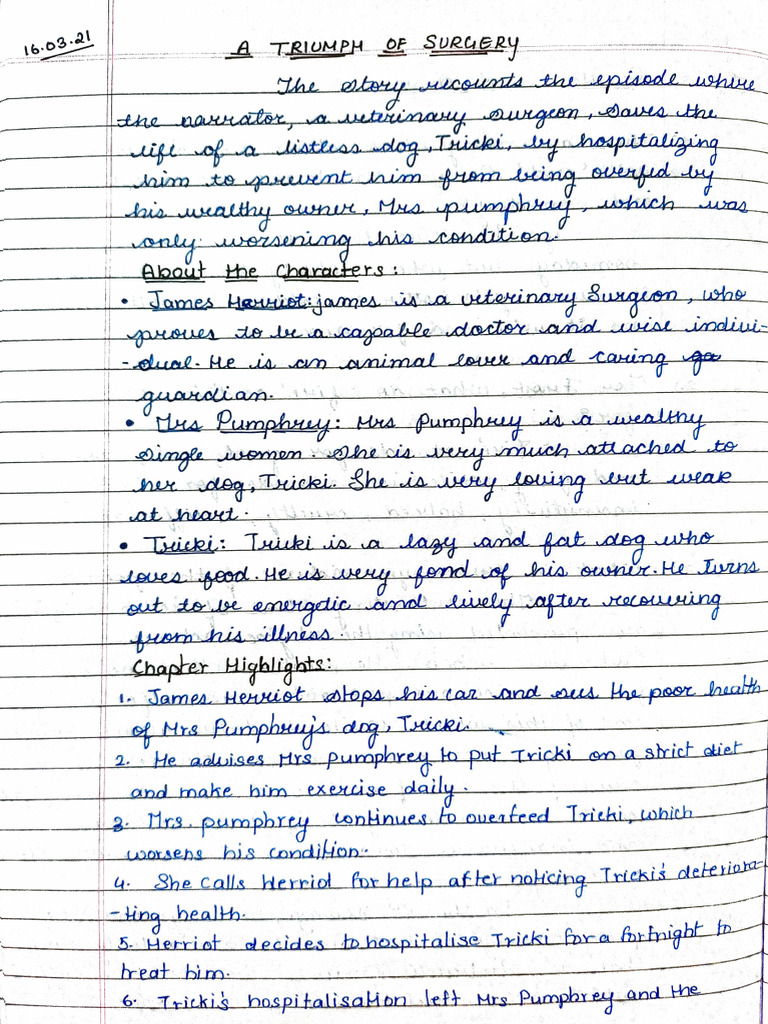 16.03.21
A TRIUMPH OF SURGERY
The story recounts the episode where
the narrator, a veterinary surgeon, saves the
life of a listless dog, Tricki, by hospitalizing
him to prevent him from being overfed by
his wealthy owner, Mrs pumphrey, which was
only worsening his condition.
About the Characters:
• James Herriot: james is a veterinary Surgeon, who
proves to be a capable doctor and wise indivi-
-dual. He is an animal lover and caring
guardian.
• Mrs Pumphrey: Mrs Pumphrey is a wealthy
single women. She is very much attached to
her dog, Tricki. She is very loving but weak
at heart.
• Tricki: Tricki is a lazy and fat dog who
loves food. He is very fond of his owner. He turns
out to be energetic and lively after recovering
from his illness.
Chapter Highlights:
1. James Herriot stops his car and sees the poor health
of Mrs Pumphrey's dog, Tricki.
2. He advises Mrs pumphrey to put Tricki on a strict diet
and make him exercise daily.
3. Mrs. pumphrey continues to overfeed Tricki, which
worsens his condition.
4. She calls Herriot for help after noticing Tricki's deteriora-
-ting health.
5. Herriot decides to hospitalise Tricki for a fortnight to
treat him.
6. Tricki's hospitalisation left Mrs Pumphrey and the